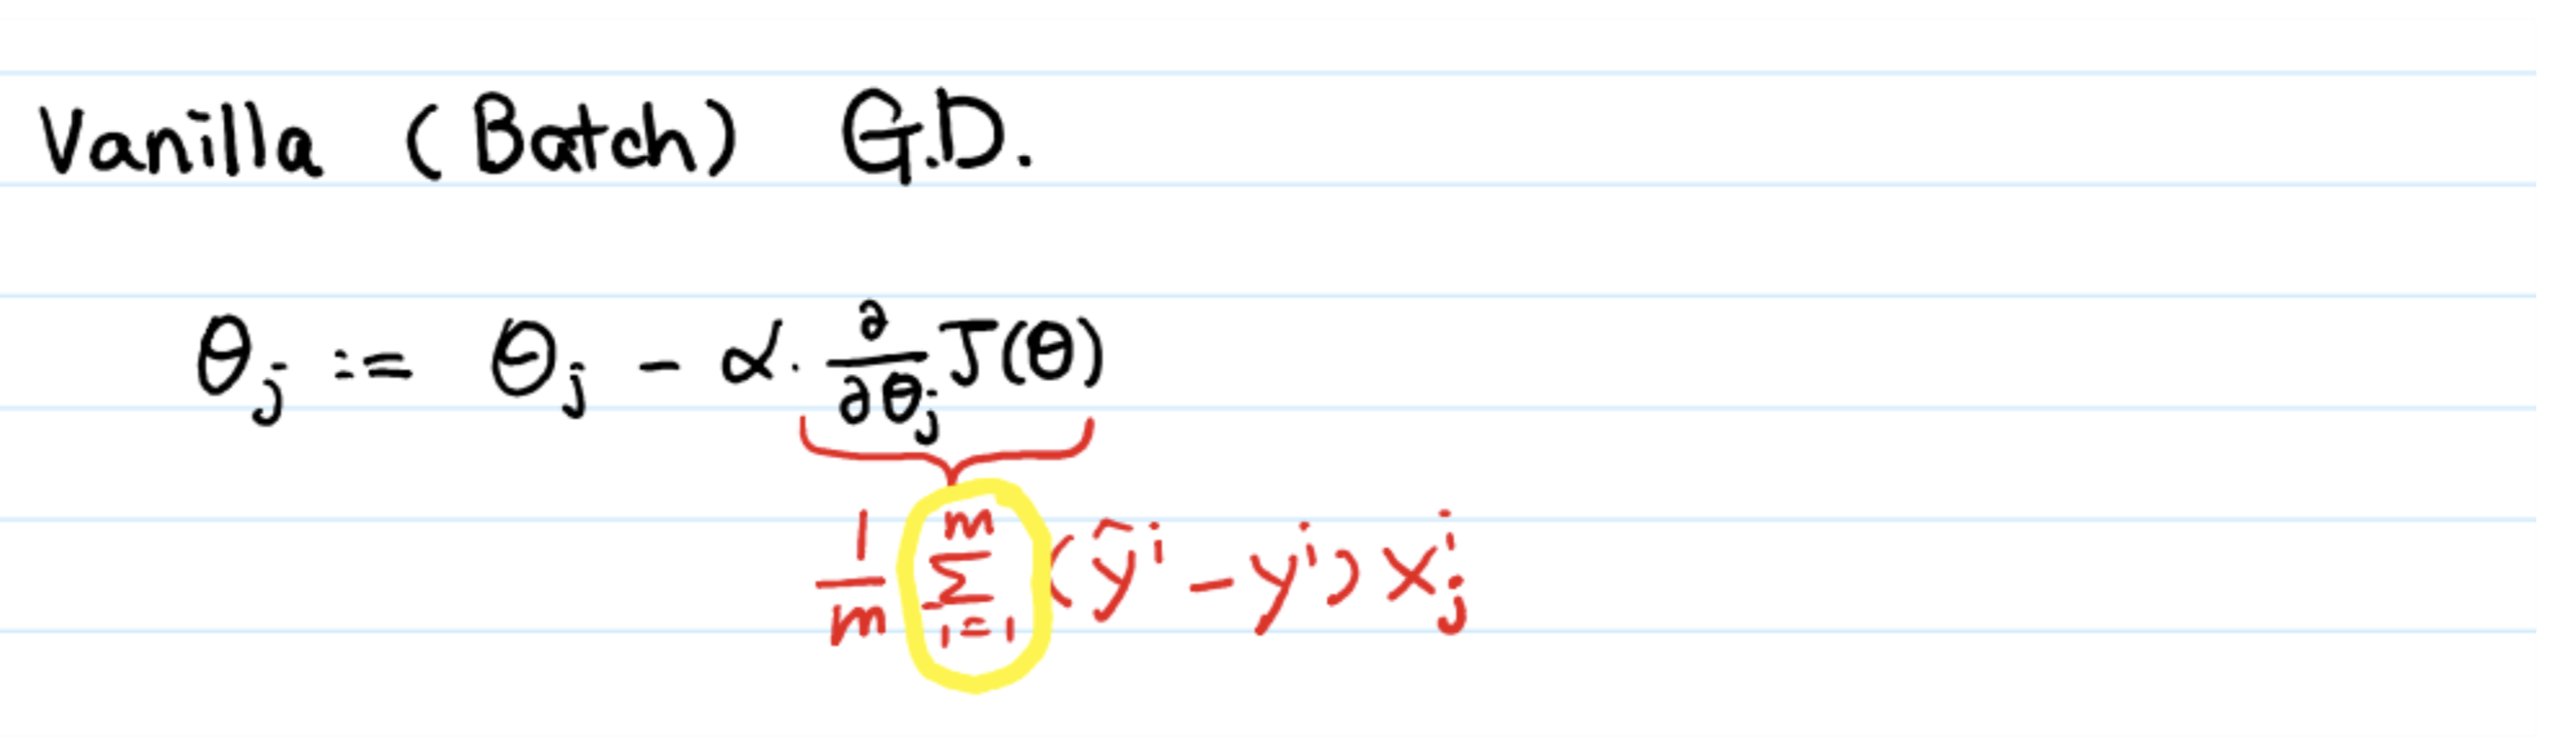 Vanilla (Batch) G.D.
θj := θj − α · ∂/∂θj J(θ)
1/m ∑_{i=1}^{m} (ŷ^i − y^i) x_j^i